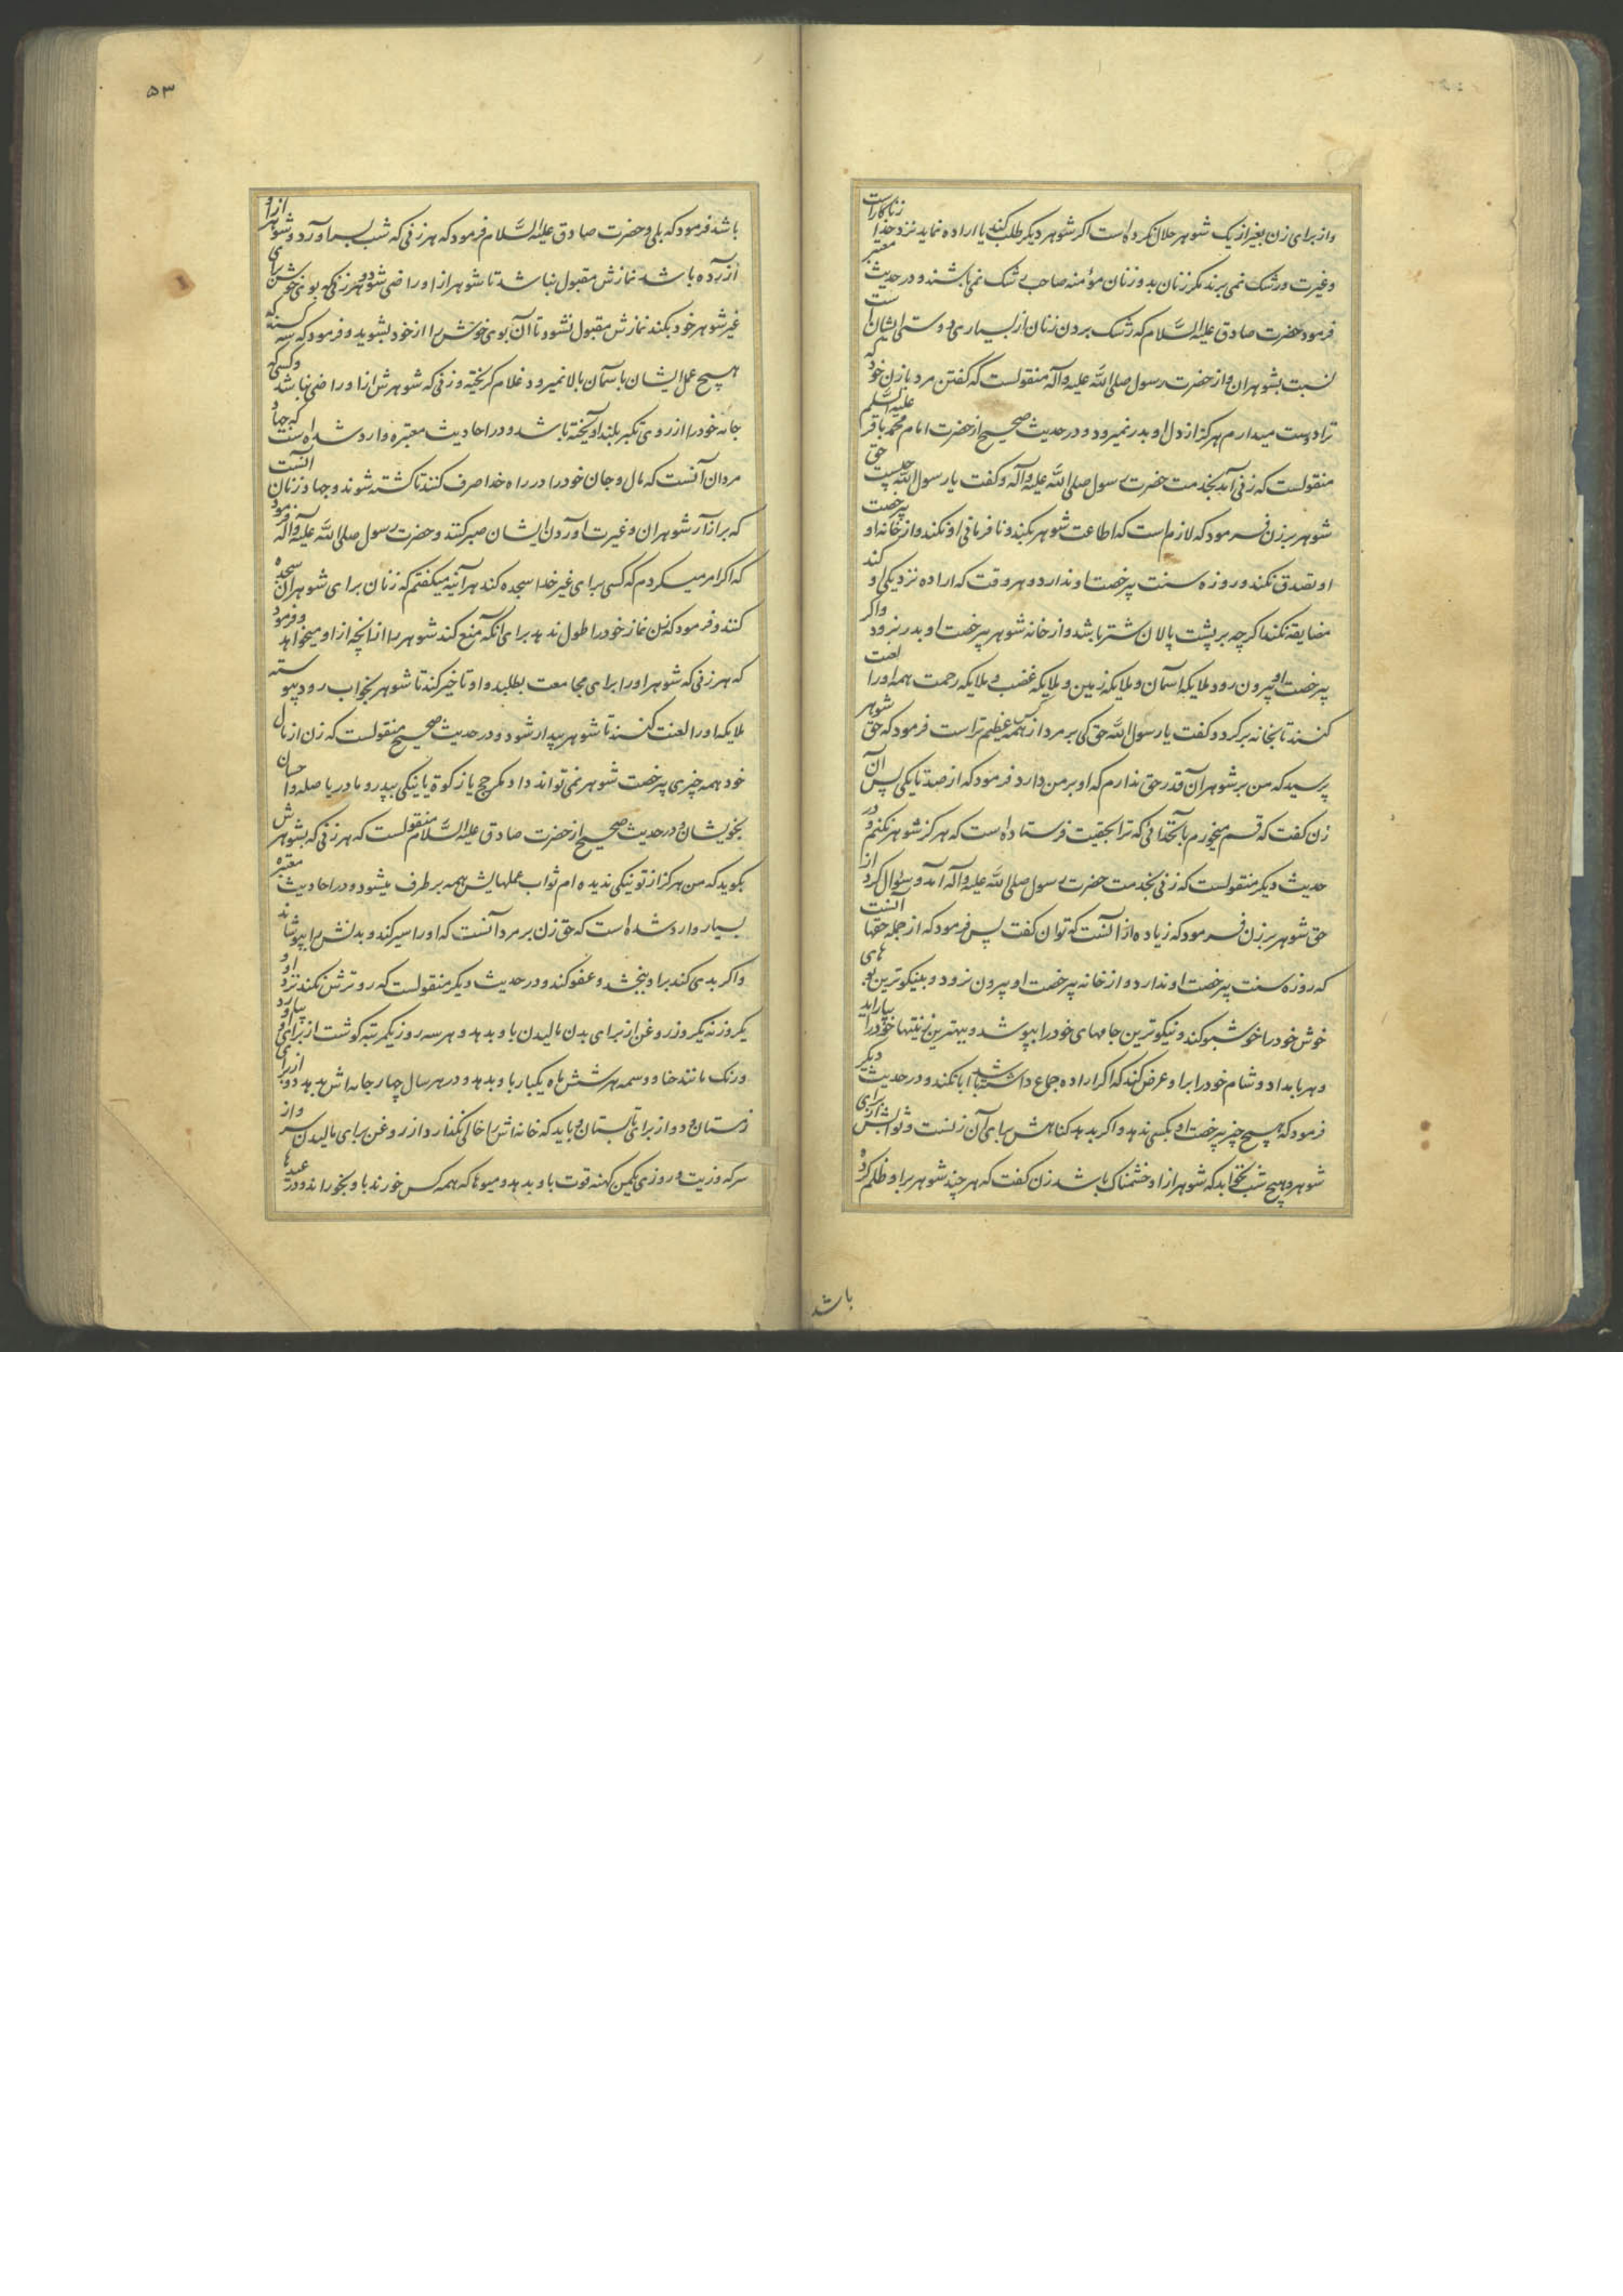 واز برای زن بغیر از یک شوهر حلال نکرده است اگر شوهر دیگر طلب کند یا اراده نماید نزد خدا زناکار است
وغیرت ورشک نمی برند مگر زنان بد و زنان مؤمنه صاحب رشک نمی باشند و در حدیث معتبر
فرمود حضرت صادق علیه السّلام که رشک بردن زنان از بسیاری دوستی ایشان است
نسبت بشوهران واز حضرت رسول صلی الله علیه وآله منقولست که گفتن مرد با زن خود که
ترا دوست میدارم هرگز از دل او بدر نمیرود و در حدیث صحیح از حضرت امام محمد باقر علیه السلم
منقولست که زنی آمد بخدمت حضرت رسول صلی الله علیه وآله و گفت یا رسول الله چیست حق
شوهر بر زن فرمود که لازم است که اطاعت شوهر بکند و نافرمانی او نکند و از خانه او بیرخصت
او تصدق نکند و روزه سنت بیرخصت او ندارد و هر وقت که اراده نزدیکی او کند
مضایقه نکند اگرچه بر پشت پالان شتر باشد و از خانه شوهر بیرخصت او بدر نرود واگر
بیرخصت او بیرون رود ملایکه آسمان و ملایکه زمین و ملایکه غضب و ملایکه رحمت همه او را لعنت
کنند تا بخانه برگردد گفت یا رسول الله حق کی بر مرد از همه کس عظیم تر است فرمود که حق شوهر
پرسید که من بر شوهر آن قدر حق ندارم که او بر من دارد فرمود که از صد تا یکی پس آن
زن گفت که قسم میخورم بآنخدائی که ترا بحقیت فرستاده است که هرگز شوهر نکنم و در
حدیث دیگر منقولست که زنی بخدمت حضرت رسول صلی الله علیه وآله آمد و سئوال کرد از
حق شوهر بر زن فرمود که زیاده از آنست که توان گفت پس فرمود که از جمله حقها آنست
که روزه سنت بیرخصت او ندارد و از خانه بیرخصت او بیرون نرود و بنیکوترین بوهای
خوش خود را خوشبو کند و نیکوترین جامهای خود را بپوشد و بهترین زینتها خود را بیاراید
و هر بامداد و شام خود را بر او عرض کند که اگر اراده جماع داشته باشد ابا نکند و در حدیث دیگر
فرمود که هیچ چیز بیرخصت او بکسی ندهد و اگر بدهد گناهش برای آن زنست و ثوابش از برای
شوهر و هیچ شب نخوابد که شوهر از او خشمناک باشد زن گفت که هر چند شوهر بر او ظلم کرده
باشد
۵۳
باشد فرمود که بلی و حضرت صادق علیه السّلام فرمود که هر زنی که شب بسر آورد و شوهر از او
آزرده باشد نمازش مقبول نباشد تا شوهر از او راضی شود و هر زنی که بوی خوش برای
غیر شوهر خود بکند نمازش مقبول نشود تا آن بوی خوش را از خود بشوید و فرمود که سه کسند که
هیچ عمل ایشان بآسمان بالا نمیرود غلام گریخته و زنی که شوهرش از او راضی نباشد و کسی که
جامه خود را از روی تکبر بلند آویخته باشد و در احادیث معتبره وارد شده است که جهاد
مردان آنست که مال و جان خود را در راه خدا صرف کنند تا کشته شوند و جهاد زنان آنست
که بر آزار شوهران و غیرت آوردن ایشان صبر کنند و حضرت رسول صلی الله علیه وآله فرمود
که اگر امر میکردم که کسی برای غیر خدا سجده کند هرآینه میگفتم که زنان برای شوهران سجده
کنند و فرمود که زن نماز خود را طول ندهد برای آنکه منع کند شوهر را از آنچه از او میخواهد و فرمود
که هر زنی که شوهر او را برای مجامعت بطلبد و او تاخیر کند تا شوهر بخواب رود پیوسته
ملایکه او را لعنت کنند تا شوهر بیدار شود و در حدیث صحیح منقولست که زن از مال
خود همه چیزی بیرخصت شوهر نمی تواند داد مگر حج یا زکوة یا نیکی بپدر و مادر یا صله و احسان
بخویشان و در حدیث صحیح از حضرت صادق علیه السّلام منقولست که هر زنی که بشوهرش
بگوید که من هرگز از تو نیکی ندیده ام ثواب عملهایش همه بر طرف میشود و در احادیث معتبره
بسیار وارد شده است که حق زن بر مرد آنست که او را سیر کند و بدنش را بپوشاند
واگر بدی کند بر او ببخشد و عفو کند و در حدیث دیگر منقولست که رو ترش نکند نزد او و
یکروز نه یکروز روغن از برای بدن مالیدن باو بدهد و هر سه روز یکمرتبه گوشت از برای او بیاورد و
ورنگ مانند حنا و وسمه هر شش ماه یکبار باو بدهد و در هر سال چهار جامه اش بدهد دو از برای
زمستان و دو از برای تابستان و باید که خانه اش را خالی نگذارد از روغن برای مالیدن سر و از
سرکه و زیت و روزی یکمن کهنه قوت باو بدهد و میوها که همه کس خورند باو بخوراند و در عیدها